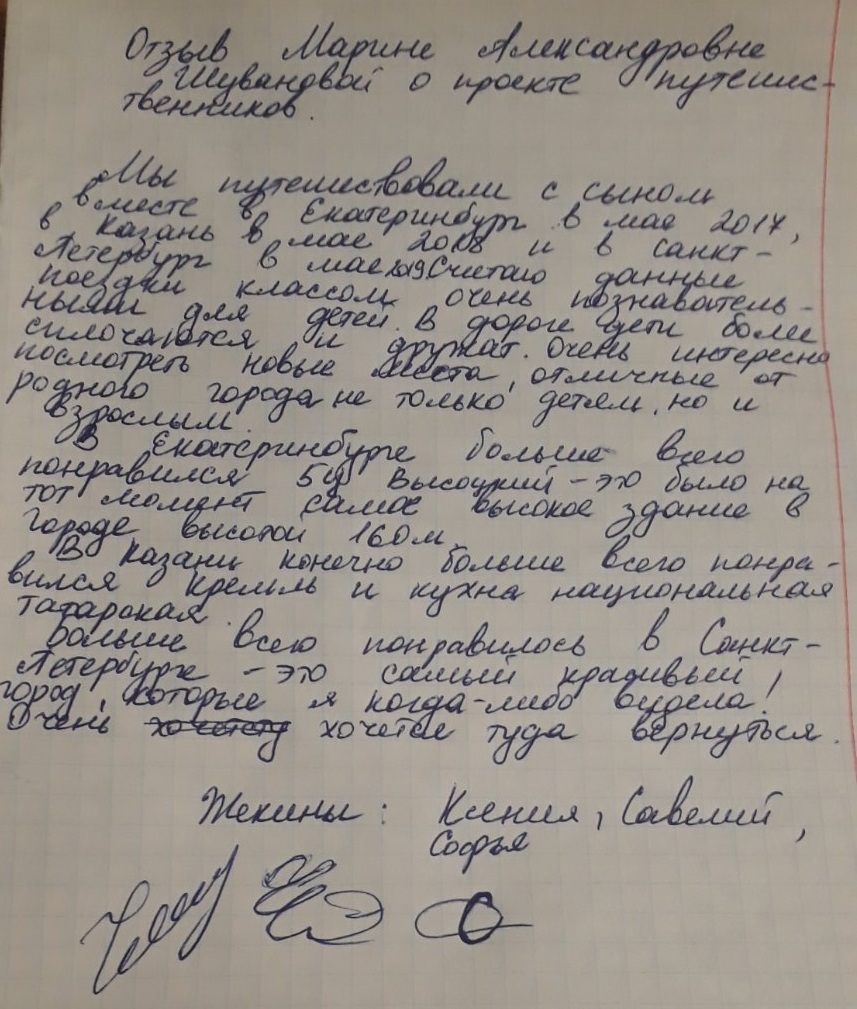 Отзыв Марине Александровне
Шувандвой о проекте путешес-
твенников.
Мы путешествовали с сыном
вместе в Екатеринбург в мае 2017,
в Казань в мае 2018 и в Санкт-
Петербург в мае 2019 Считаю данные
поездки классом очень познаватель-
ными для детей. В дороге дети более
сплочаются и дружат. Очень интересно
посмотреть новые места, отличные от
родного города не только детям, но и
взрослым.
В Екатеринбурге больше всего
понравился БЦ Высоцкий - это было на
тот момент самое высокое здание в
городе высотой 160м.
В Казани конечно больше всего понра-
вился Кремль и кухна национальная
татарская.
Больше всего понравилось в Санкт-
Петербурге - это самый красивый
город, которые я когда-либо видела!
Очень хочется туда вернуться.
Жекины: Ксения, Савелий,
Софья